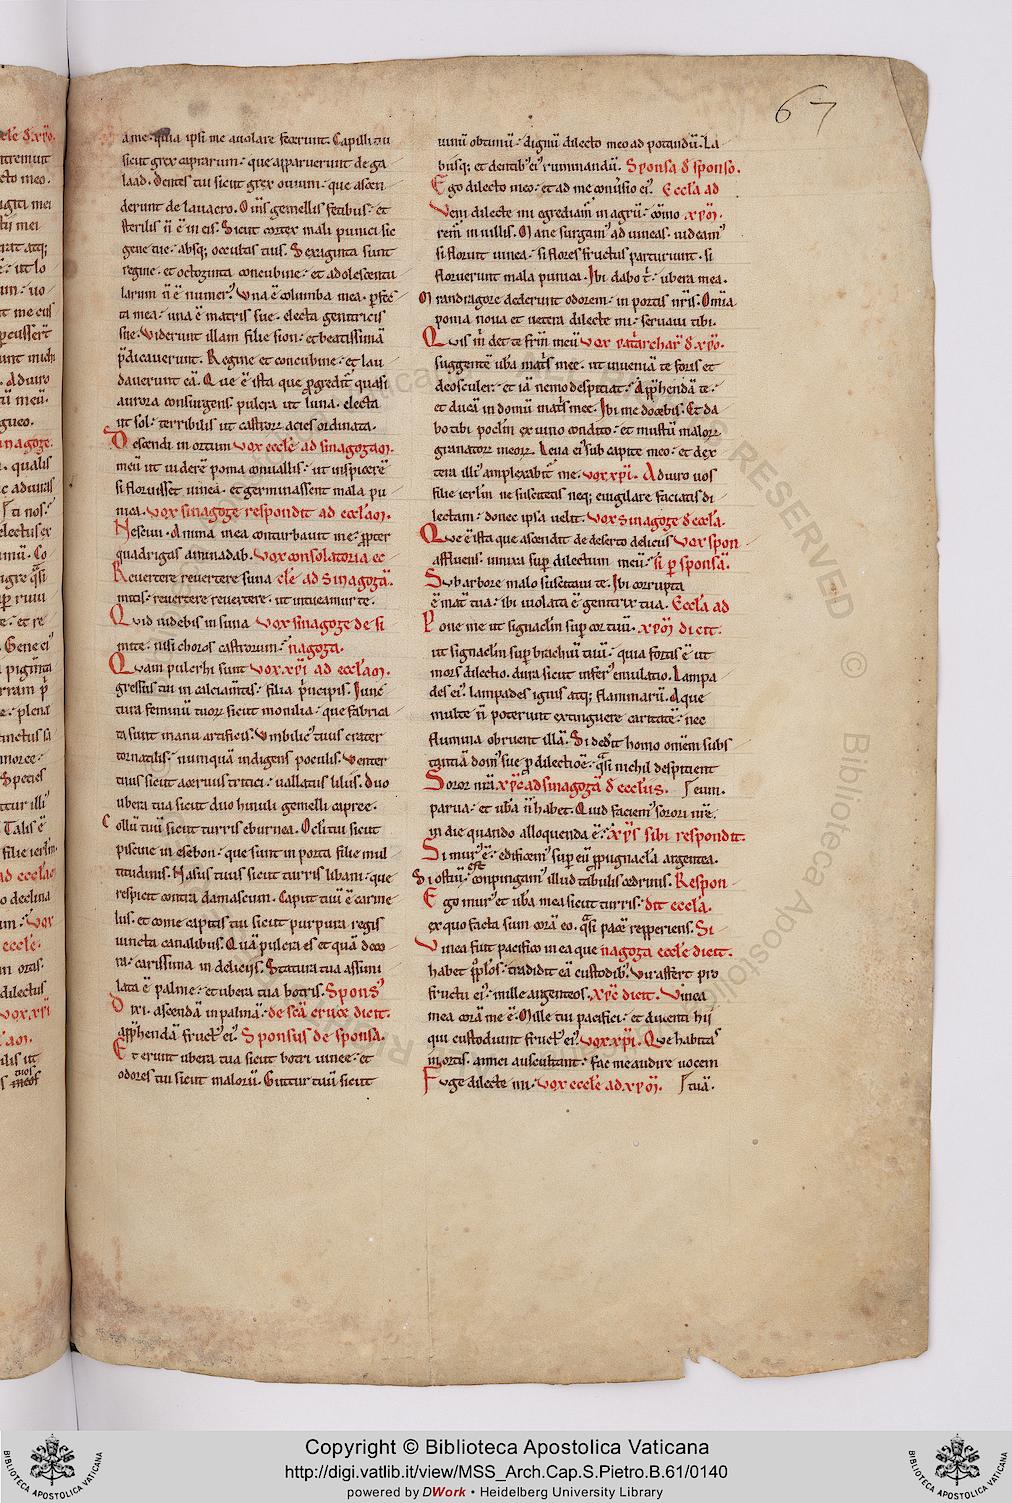 67
a me· quia ipsi me auolare fecerunt Capilli tui
sicut grex caprarum· que apparuerunt de ga
laad. Dentes tui sicut grex ouium· que ascen
derunt de lauacro. Oms gemellis fetibus· et
sterilis n̄ ē in eis. Sicut cortex mali punici sic
gene tue· absq; occultis tuis. Sexaginta sunt
regine· et octoginta concubine· et adolescentu
larum n̄ ē numer᷒. Una ē columba mea· ꝑfec
ta mea· una ē matris sue· electa genitricis
sue. Viderunt illam filie sion· et beatissimā
p̄dicauerunt. Regine et concubine· et lau
dauerunt eā. Que ē ista que ꝓgredit᷑ quasi
aurora consurgens· pulcra ut luna· electa
ut sol· terribilis ut castror̄ acies ordinata.
Descendi in ortum vox eccle ad sinagogam.
meū ut uiderē poma conuallis· ut inspicerē
si floruisset uinea· et germinassent mala pu
nica. vox sinagoge respondit ad eccłam.
Nesciui. Anima mea conturbauit me· ꝓpter
quadrigas aminadab. vox consolatoria ec
Reuertere reuertere suna cłe ad sinagogā.
mitis· reuertere reuertere· ut intueamur te.
Quid uidebis in suna vox sinagoge de si
mite· nisi choros castrorum· nagoga.
Quam pulchri sunt vox xp̄i ad eccłam.
gressus tui in calciam̄tis· filia p̄ncipis. Iunc
tura feminū tuor̄ sicut monilia· que fabrica
ta sunt manu artificis. Umbilic᷒ tuus crater
tornatilis· numquā indigens poculis. Venter
tuus sicut aceruus tritici· uallatus liliis. Duo
ubera tua sicut duo hinuli gemelli capree·
Collū tuū sicut turris eburnea. Ocłi tui sicut
piscine in esebon· que sunt in porta filie mul
titudinis. Nasus tuus sicut turris libani· que
respicit contra damascum. Caput tuū ē carme
lus· et come capitis tui sicut purpura regis
uincta canalibus. Quā pulcra es et quā deco
ra· carissima in delicijs. Statura tua assimi
lata ē palme· et ubera tua botris. Spons᷒
Dixi. ascendā in palmā· de scā cruce dicit.
app̄hendā fruct᷒ ei᷒. Sponsus de sponsa.
Et erunt ubera tua sicut botri uinee· et
odores tui sicut malorū. Guttur tuū sicut
uinū obtimū· dignū dilecto meo ad potandū· La
biisq; et dentib᷒ ei᷒ ruminandū. Sponsa d̄ sponso.
Ego dilecto meo· et ad me conūsio ei᷒. Eccła ad
Veni dilecte mi egrediam᷒ in agrū· cōmo xp̄m.
rem᷒ in uillis. Mane surgam᷒ ad uineas· uideam᷒
si floruit uinea· si flores fructus parturiunt· si
floruerunt mala punica. Ibi dabo t᷑· ubera mea.
Mandragore dederunt odorem· in portis nr̄is. Omīa
poma noua et uetera dilecte mi· seruaui tibi.
Quis m̄ det te frm̄ meū vox patriarchar̄ d̄ xp̄o.
suggentē ub̄a mat̄s mee· ut inueniā te foris et
deosculer· et iā nemo despiciat· App̄hendā te·
et ducā in domū mat̄s mee. Ibi me docebis. Et da
bo tibi poclm̄ ex uino condito· et mustū malor̄
granator̄ meor̄. Leua ei᷒ sub capite meo· et dex
tera illi᷒ amplexabit᷑ me. vox xp̄i. Adiuro uos
filie ierłm ne suscitetis neq; euigilare faciatis di
lectam· donec ipsa uelit. vox sinagoge d̄ eccła.
Que ē ista que ascendit de deserto deliciis vox spon
affluens· innixa suꝑ dilectum meū· si ꝑ sponsā.
Sub arbore malo suscitaui te. Ibi corrupta
ē mat᷑ tua· ibi uiolata ē genitrix tua. Eccła ad
Pone me ut signacłm suꝑ cor tuū. xp̄m dicit.
ut signacłm suꝑ brachiū tuū· quia fortis ē ut
mors dilectio· dura sicut infer᷒ emulatio. Lampa
des ei᷒· lampades ignis atq; flammarū. Aque
multe n̄ poterunt extinguere caritatē· nec
flumina obruent illā. Si dedit homo omēm subs
tantiā dom᷒ sue ꝓ dilectioē· q̄si nichil despicient
Soror nr̄a xp̄c ad sinagogā d̄ eccłiis. eum.
parua· et ub̄a n̄ habet. Quid faciem᷒ sorori nr̄e·
in die quando alloquenda ē· xp̄s sibi respondit.
Si mur᷒ ē· edificem᷒ suꝑ eū ꝓpugnacła argentea.
Si ostiū est· conpingam᷒ illud tabulis cedrinis. Respon
Ego mur᷒ et ub̄a mea sicut turris· dit eccła.
ex quo facta sum corā eo· q̄si pacē repperiens. Si
Vinea fuit pacifico in ea que nagoga eccłe dicit.
habet ppłos· tradidit eā custodib᷒. Vir affert pro
fructu ei᷒· mille argenteos. xp̄c dicit. Vinea
mea corā me ē. Mille tui pacifici· et ducenti hij
qui custodiunt fruct᷒ ei᷒. vox xp̄i. Que habitas
in ortis· amici auscultant· fac me audire uocem
Fuge dilecte mi· vox eccłe ad xp̄m. tuā.
Copyright © Biblioteca Apostolica Vaticana
http://digi.vatlib.it/view/MSS_Arch.Cap.S.Pietro.B.61/0140
powered by DWork • Heidelberg University Library